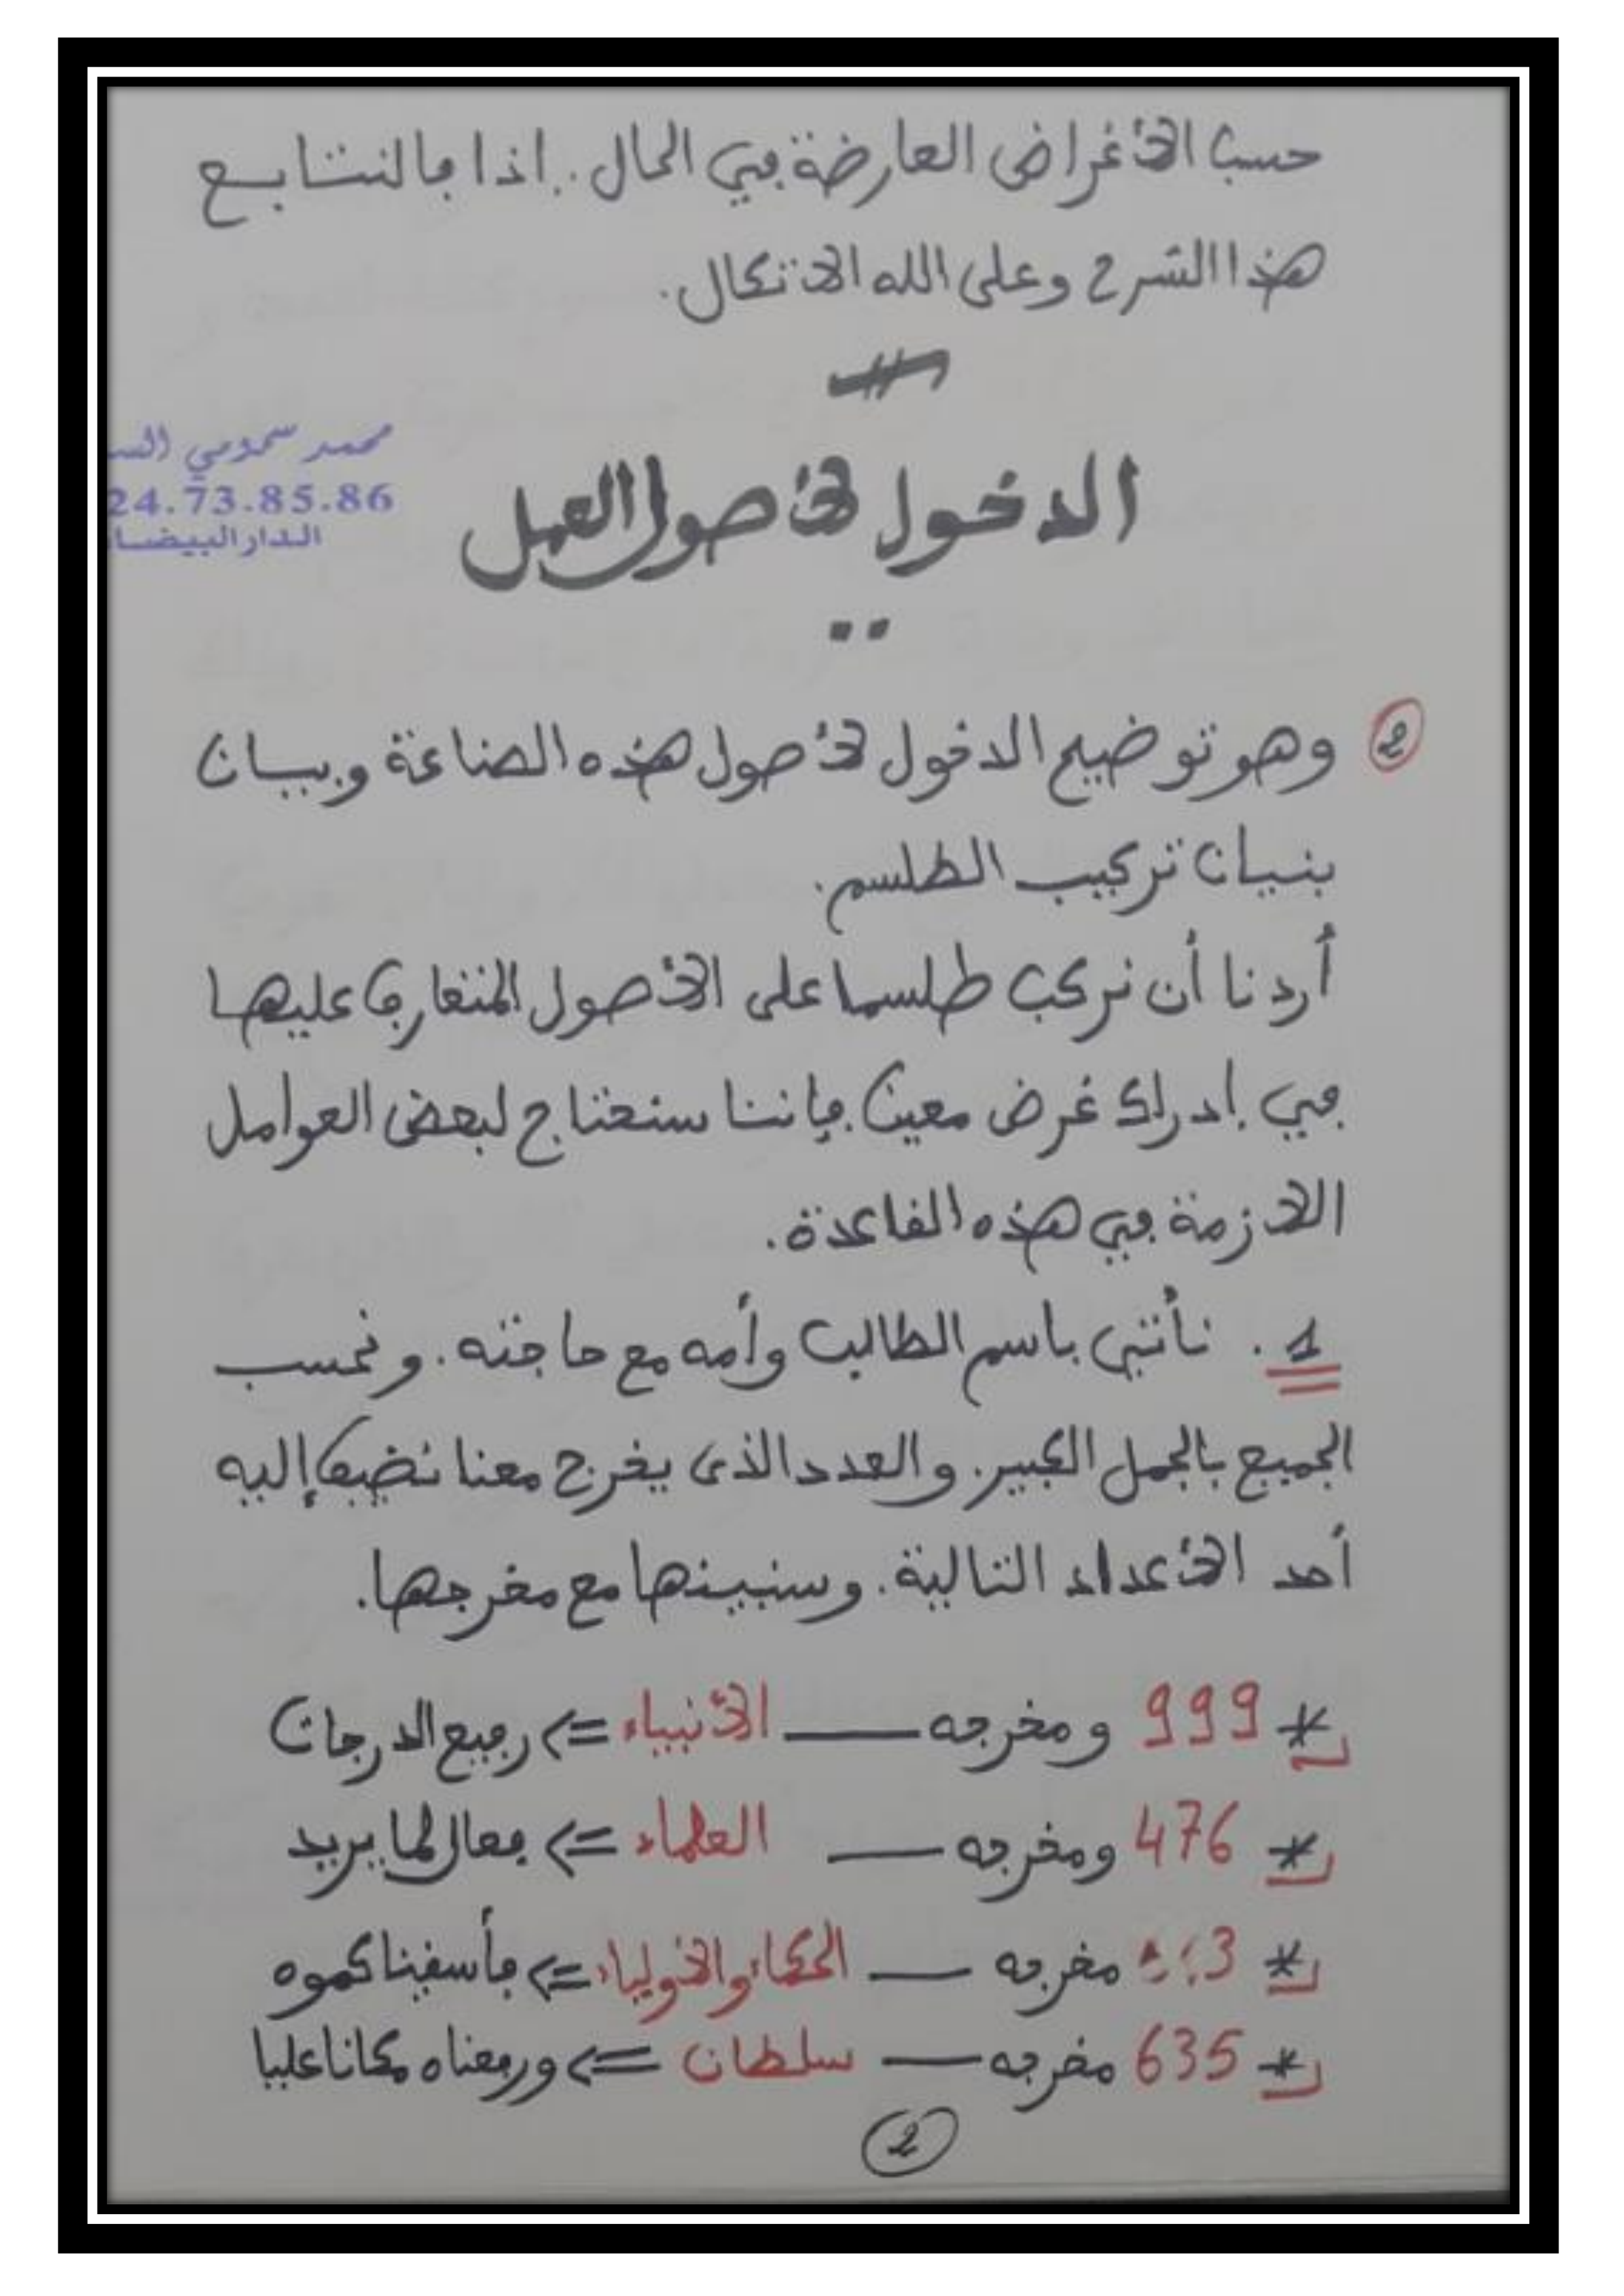 حسب الأغراض العارضة في الحال .. اذا فالنتابع
هذا الشرح وعلى الله الاتكال.
محمد سمومي
24.73.85.86
الدار البيضا
الدخول لأصول العمل
2 وهو توضيح الدخول لأصول هذه الصناعة وبيان
بنيان تركيب الطلسم.
أردنا أن نركب طلسما على الأصول المتعارف عليها
في إدراك غرض معين فإننا سنحتاج لبعض العوامل
اللازمة في هذه القاعدة.
1. نأتي باسم الطالب وأمه مع حاجته. ونحسب
الجميع بالجمل الكبير. والعدد الذي يخرج معنا نضيف إليه
أحد الأعداد التالية. وسنبينها مع مخرجها.
* 999 ومخرجه — الأنبياء <= رفيع الدرجات
* 476 ومخرجه — العلماء <= فعال لما يريد
* مخرجه — الحكماء والأولياء <= فأسقيناكموه
* 635 مخرجه — سلطان <= ورفعناه مكانا عليا
2